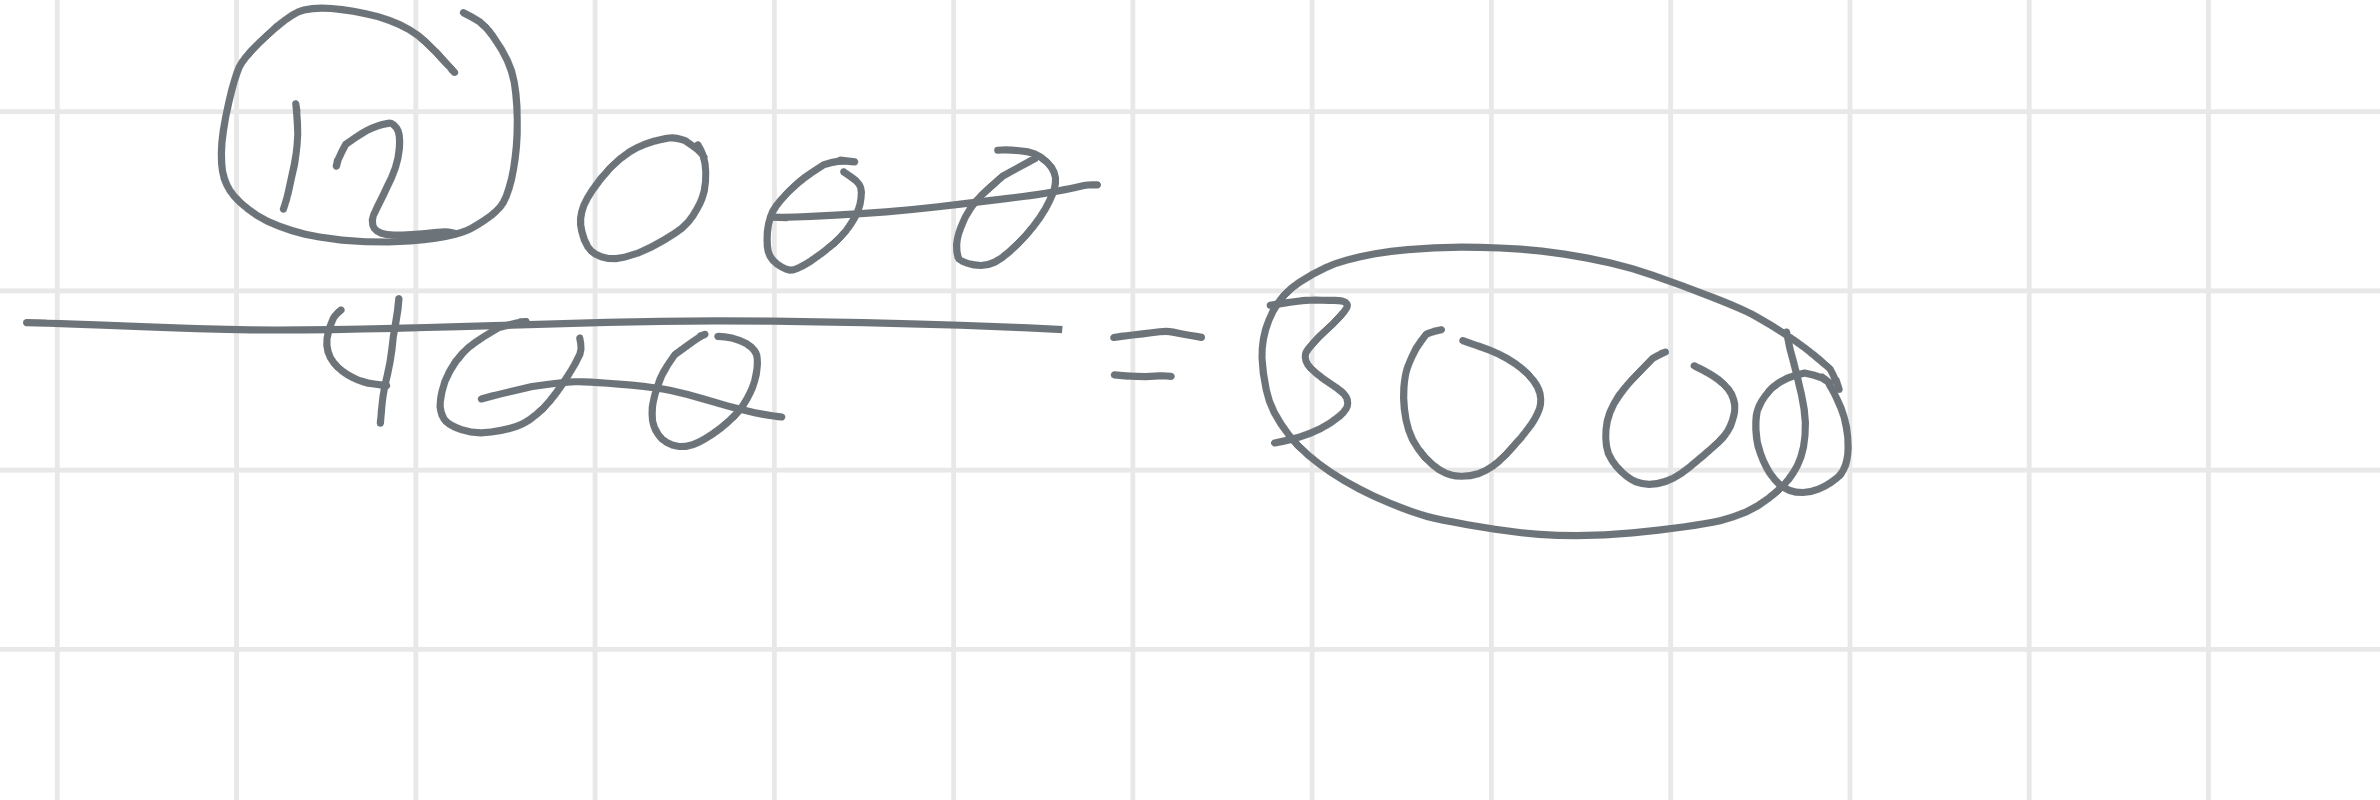 12000
400 = 3000